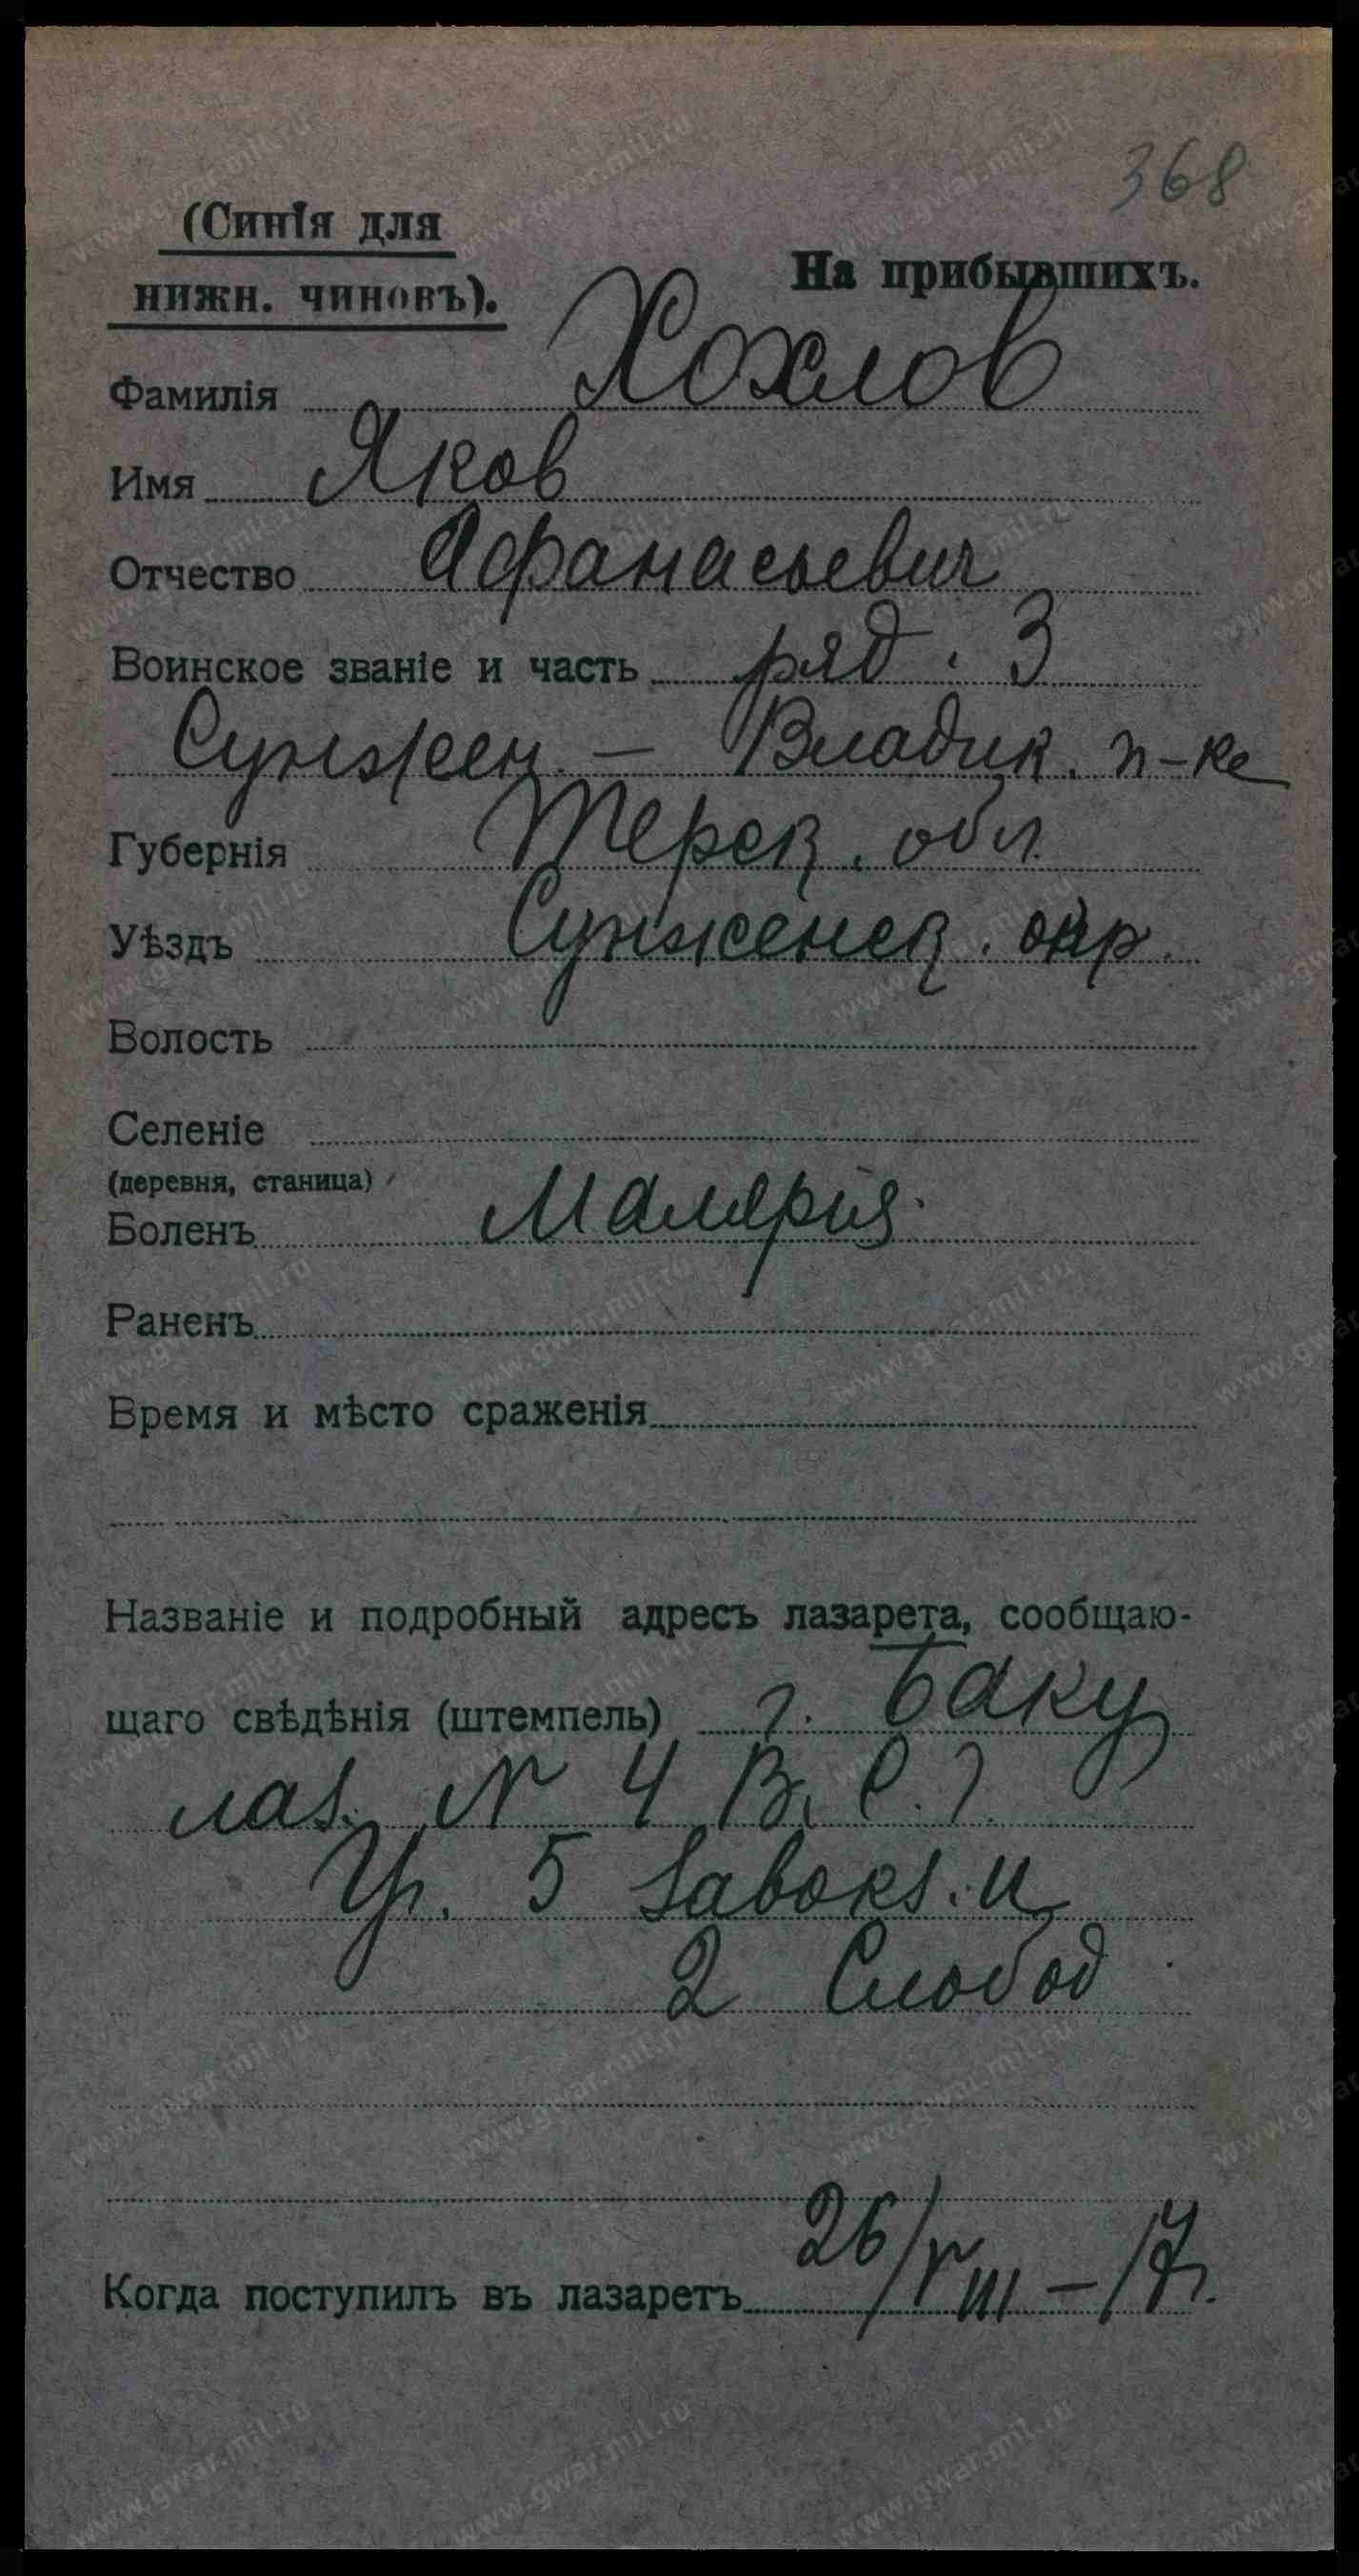 368
(Синія для
нижн. чиновъ).
На прибывшихъ.
Фамилія Хохлов
Имя Яков
Отчество Афанасьевич
Воинское званіе и часть ряд. 3
Сунжен. – Владик. п-ка
Губернія Терск. обл.
Уѣздъ Сунженск. окр.
Волость
Селеніе
(деревня, станица)
Боленъ Малярия.
Раненъ
Время и мѣсто сраженія
Названіе и подробный адресъ лазарета, сообщаю-
щаго свѣдѣнія (штемпель) г. Баку
лаз. N 4 В. С. Г.
Уг. 5 Завокз. и
2 Слобод
Когда поступилъ въ лазаретъ 26/VIII – 17г.
www.gwar.mil.ru